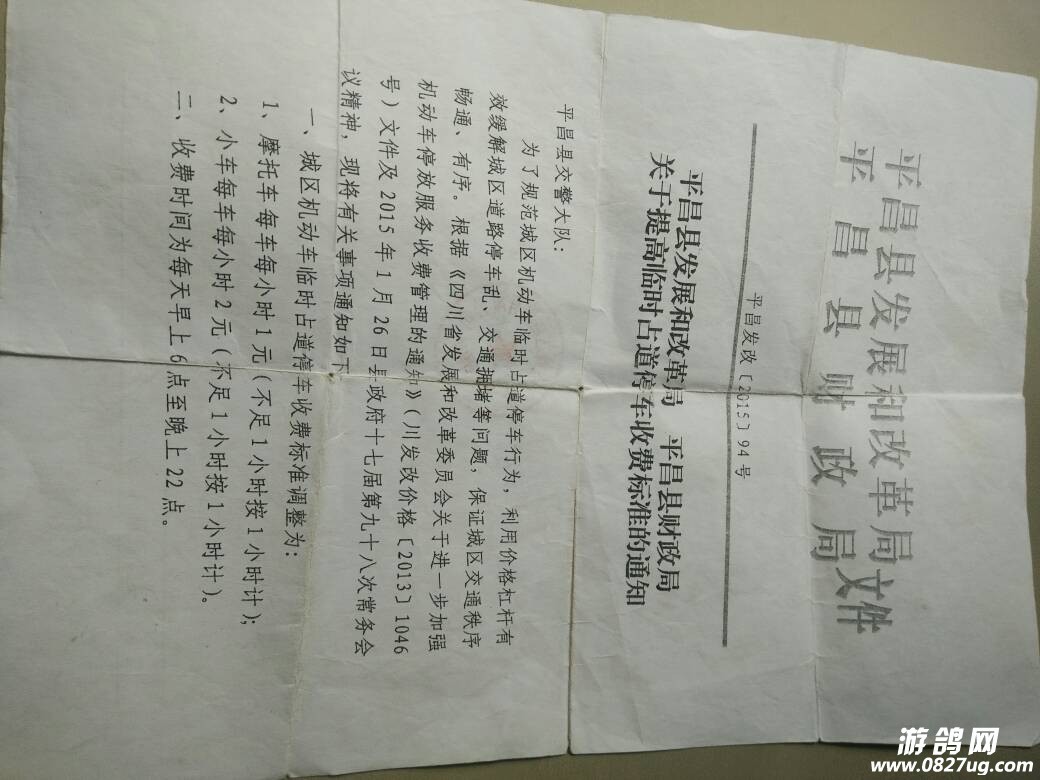 平昌县发展和改革局
平昌县财政局
文件
平昌发改〔2015〕94号
平昌县发展和改革局 平昌县财政局
关于提高临时占道停车收费标准的通知
平昌县交警大队：
为了规范城区机动车临时占道停车行为，利用价格杠杆有
效缓解城区道路停车乱、交通拥堵等问题，保证城区交通秩序
畅通、有序。根据《四川省发展和改革委员会关于进一步加强
机动车停放服务收费管理的通知》（川发改价格〔2013〕1046
号）文件及2015年1月26日县政府十七届第九十八次常务会
议精神，现将有关事项通知如下
一、城区机动车临时占道停车收费标准调整为：
1、摩托车每车每小时1元（不足1小时按1小时计）；
2、小车每车每小时2元（不足1小时按1小时计）。
二、收费时间为每天早上6点至晚上22点。
游鸽网
www.0827ug.com